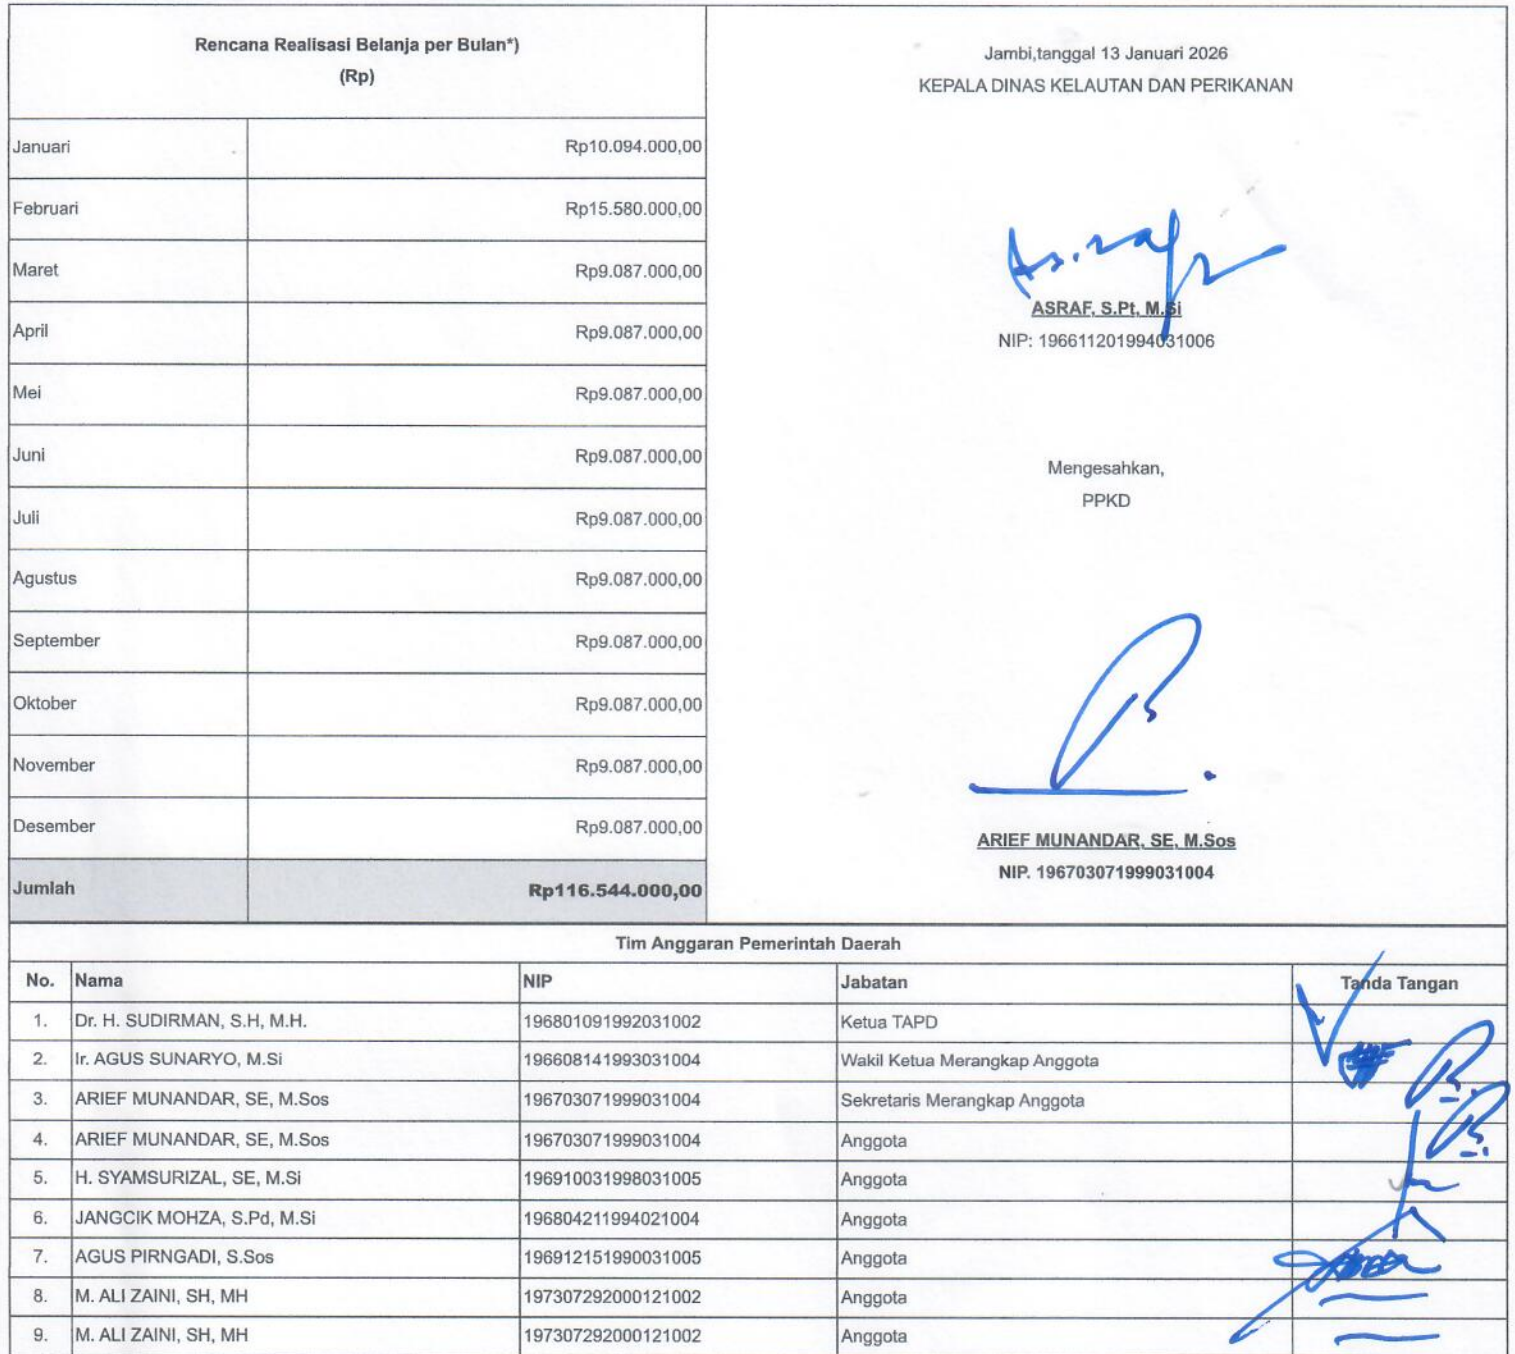 Rencana Realisasi Belanja per Bulan*)
(Rp)
Januari Rp10.094.000,00
Februari Rp15.580.000,00
Maret Rp9.087.000,00
April Rp9.087.000,00
Mei Rp9.087.000,00
Juni Rp9.087.000,00
Juli Rp9.087.000,00
Agustus Rp9.087.000,00
September Rp9.087.000,00
Oktober Rp9.087.000,00
November Rp9.087.000,00
Desember Rp9.087.000,00
Jumlah Rp116.544.000,00
Jambi,tanggal 13 Januari 2026
KEPALA DINAS KELAUTAN DAN PERIKANAN
ASRAF, S.Pt, M.Si
NIP: 196611201994031006
Mengesahkan,
PPKD
ARIEF MUNANDAR, SE, M.Sos
NIP. 196703071999031004
Tim Anggaran Pemerintah Daerah
No. Nama NIP Jabatan Tanda Tangan
1. Dr. H. SUDIRMAN, S.H, M.H. 196801091992031002 Ketua TAPD
2. Ir. AGUS SUNARYO, M.Si 196608141993031004 Wakil Ketua Merangkap Anggota
3. ARIEF MUNANDAR, SE, M.Sos 196703071999031004 Sekretaris Merangkap Anggota
4. ARIEF MUNANDAR, SE, M.Sos 196703071999031004 Anggota
5. H. SYAMSURIZAL, SE, M.Si 196910031998031005 Anggota
6. JANGCIK MOHZA, S.Pd, M.Si 196804211994021004 Anggota
7. AGUS PIRNGADI, S.Sos 196912151990031005 Anggota
8. M. ALI ZAINI, SH, MH 197307292000121002 Anggota
9. M. ALI ZAINI, SH, MH 197307292000121002 Anggota